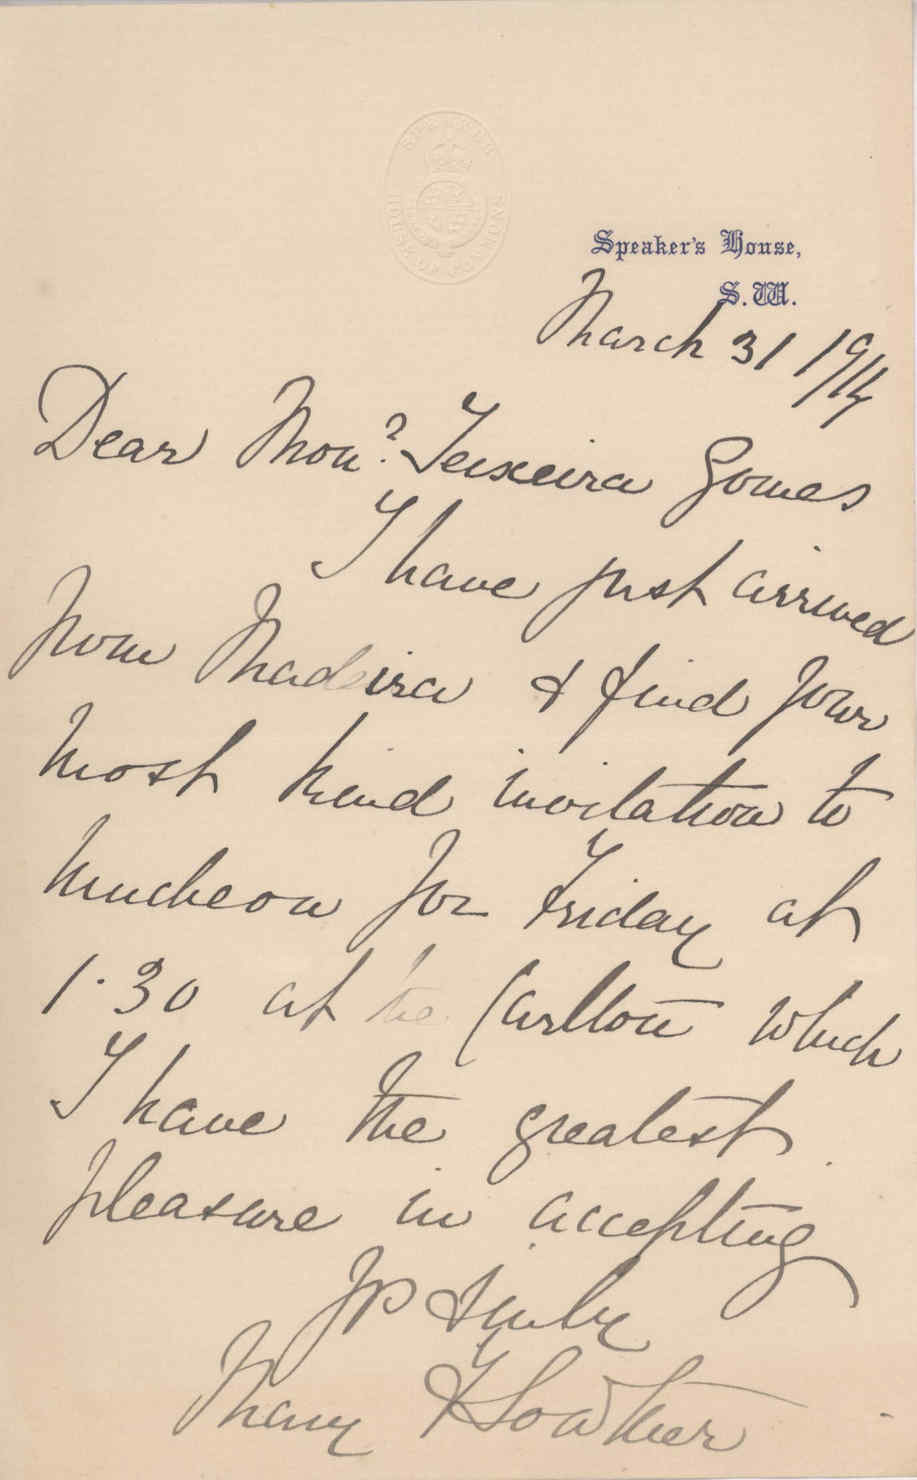 SPEAKER
HOUSE OF COMMONS
Speaker's House,
S.W.
March 31 1914
Dear Monr. Teixeira Gomes
I have just arrived
from Madeira & find your
most kind invitation to
luncheon for Friday at
1.30 at the Carlton which
I have the greatest
pleasure in accepting
Yrs
Mary F Lowther